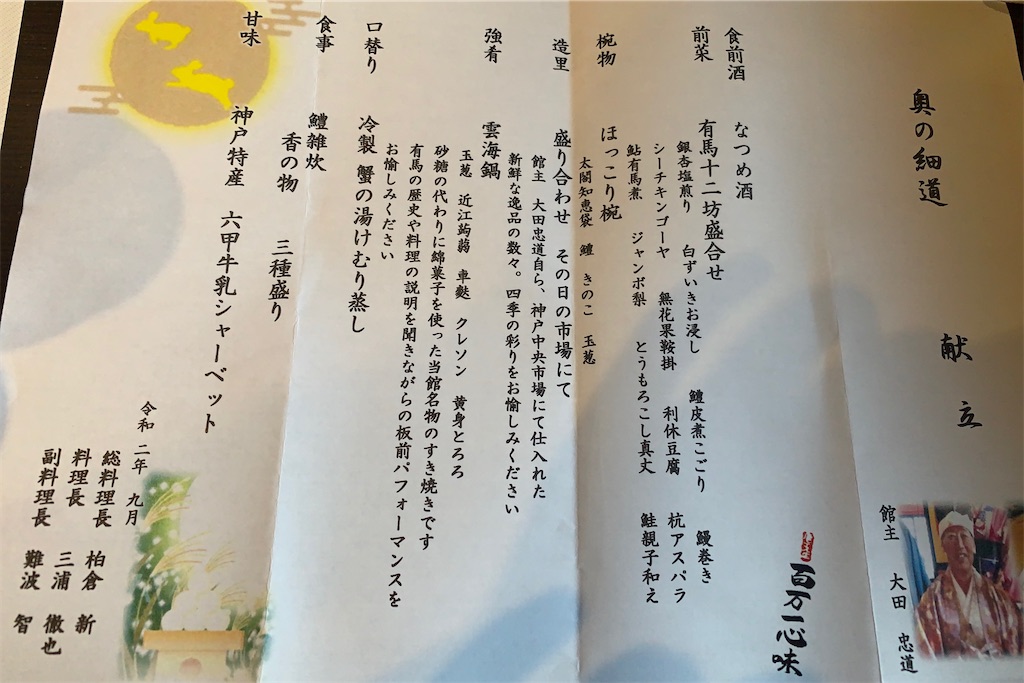 奥の細道
献立
館主 大田 忠道
百万一心味
食前酒 なつめ酒
前菜 有馬十二坊盛合せ
銀杏塩煎り 白ずいきお浸し 鱧皮煮こごり 鰻巻き
シーチキンゴーヤ 無花果鞍掛 利休豆腐 杭アスパラ
鮎有馬煮 ジャンボ梨 とうもろこし真丈 鮭親子和え
椀物 ほっこり椀
太閤知恵袋 鱧 きのこ 玉葱
造里 盛り合わせ その日の市場にて
館主 大田忠道自ら、神戸中央市場にて仕入れた
新鮮な逸品の数々。四季の彩りをお愉しみください
強肴 雲海鍋
玉葱 近江蒟蒻 車麩 クレソン 黄身とろろ
砂糖の代わりに綿菓子を使った当館名物のすき焼きです
有馬の歴史や料理の説明を聞きながらの板前パフォーマンスを
お愉しみください
口替り 冷製 蟹の湯けむり蒸し
食事 鱧雑炊
香の物 三種盛り
甘味 神戸特産 六甲牛乳シャーベット
令和二年 九月
総料理長 柏倉 新
料理長 三浦 徹也
副料理長 難波 智